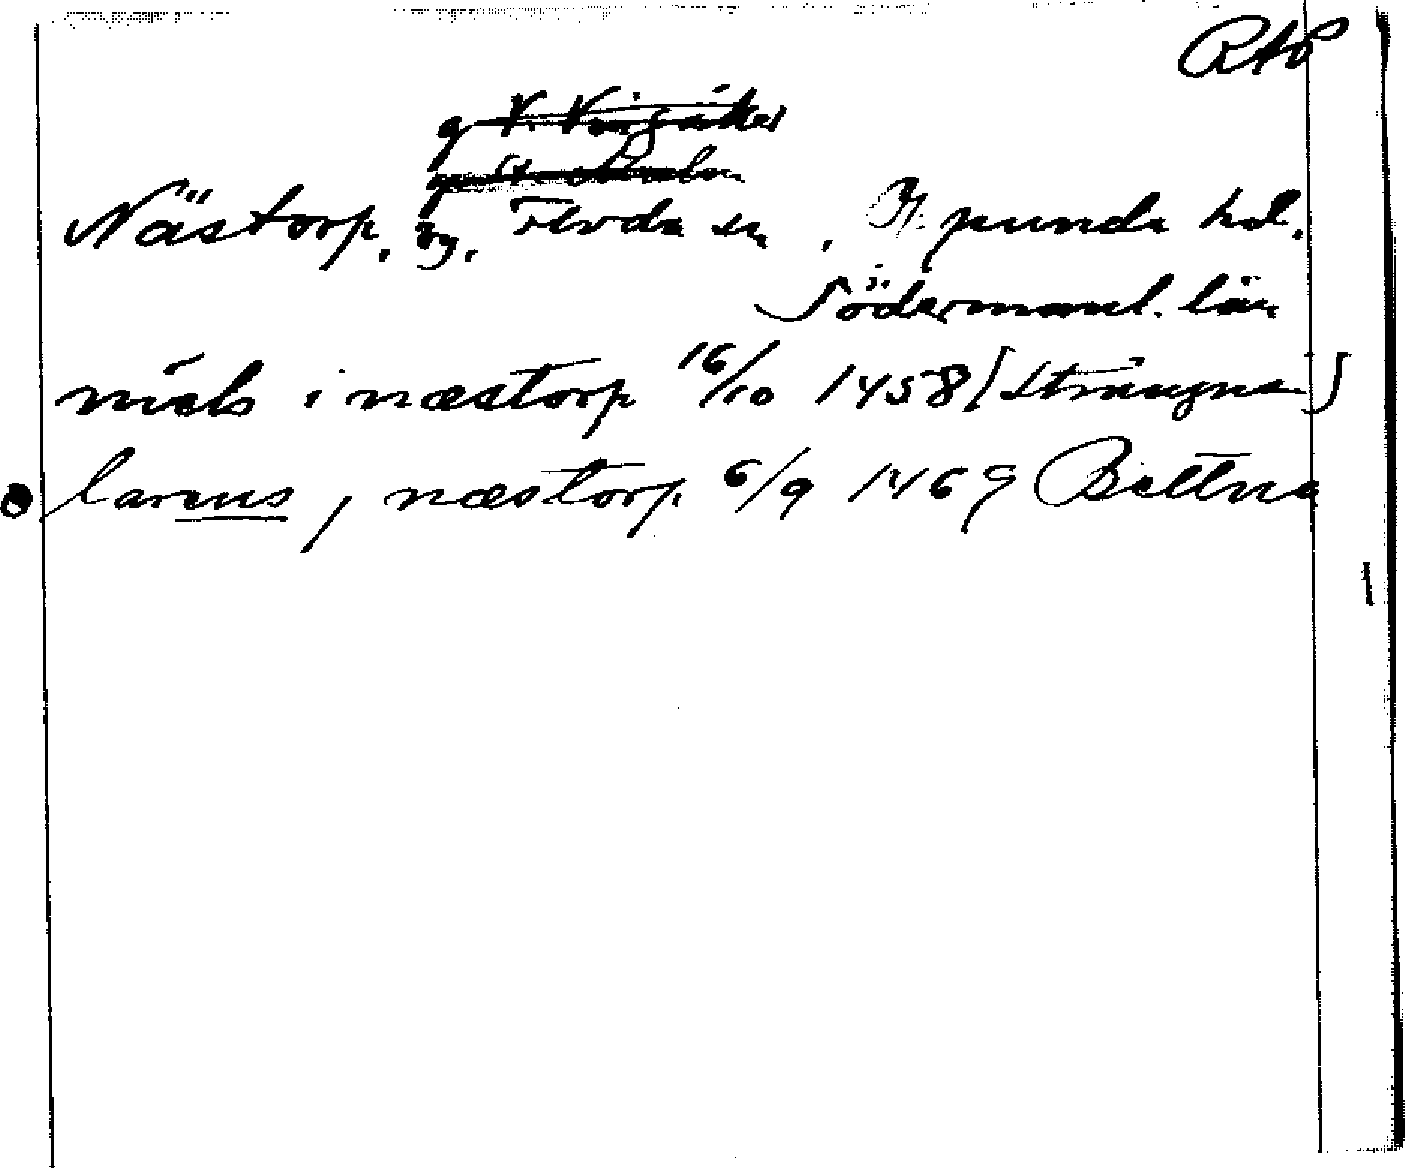 RAP
g V. Vingåker
Nästorp, by, Floda sn, Oppunda hd.
Södermanl. län
niels i næstorp 16/10 1458 [Strängnäs]
larens, næstorp 6/9 1469 Bettna